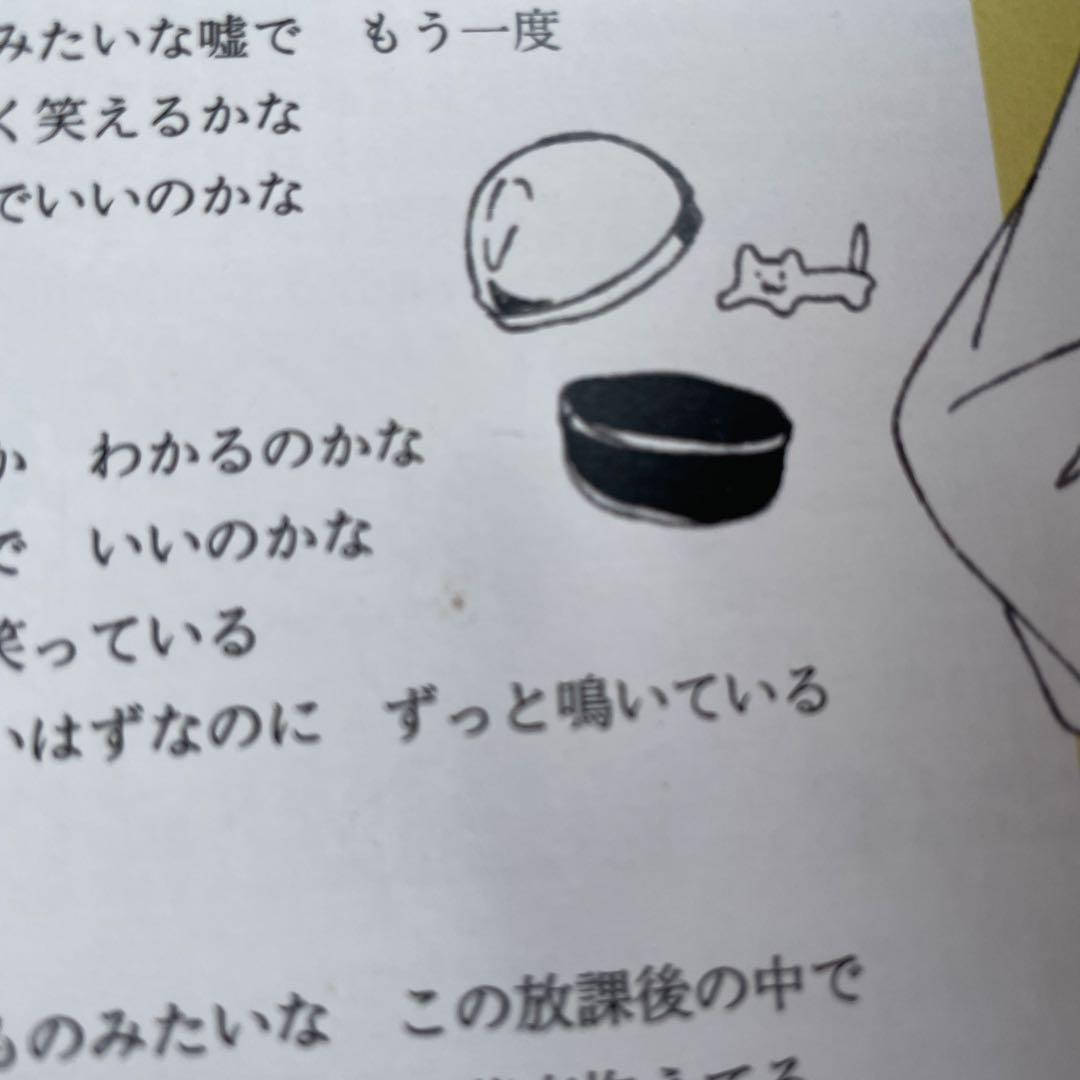 みたいな嘘で　もう一度
く笑えるかな
でいいのかな
か　わかるのかな
で　いいのかな
笑っている
いはずなのに　ずっと鳴いている
ものみたいな　この放課後の中で